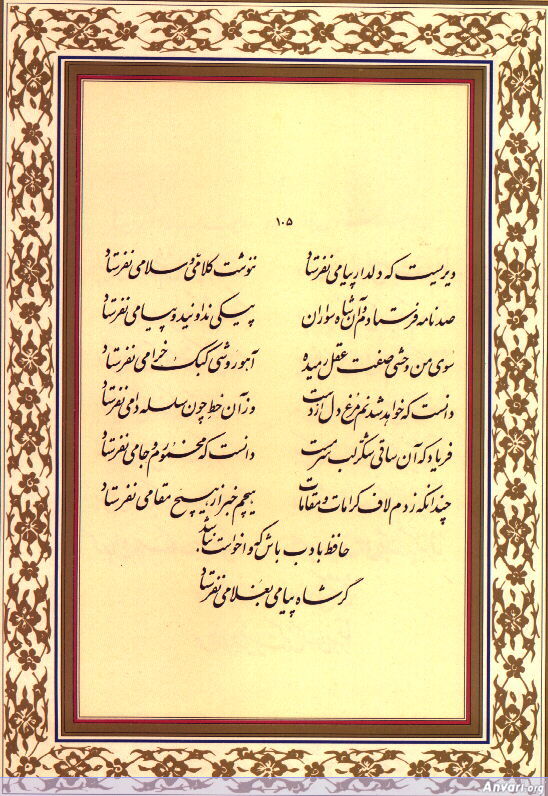 ۱۰۵
دیریست که دلدار پیامی نفرستاد ننوشت کلامی و سلامی نفرستاد
صد نامه فرستادم و آن شاه سواران پیکی ندوانید و پیامی نفرستاد
سوی من وحشی صفت عقل رمیده آهو روشی کبک خرامی نفرستاد
دانست که خواهد شدنم مرغ دل از دست وز آن خط چون سلسله دامی نفرستاد
فریاد که آن ساقی شکر لب سرمست دانست که مخمورم و جامی نفرستاد
چندانکه زدم لاف کرامات و مقامات هیچم خبر از هیچ مقامی نفرستاد
حافظ بادب باش که واخواست نباشد
گر شاه پیامی بغلامی نفرستاد
Anvari.org